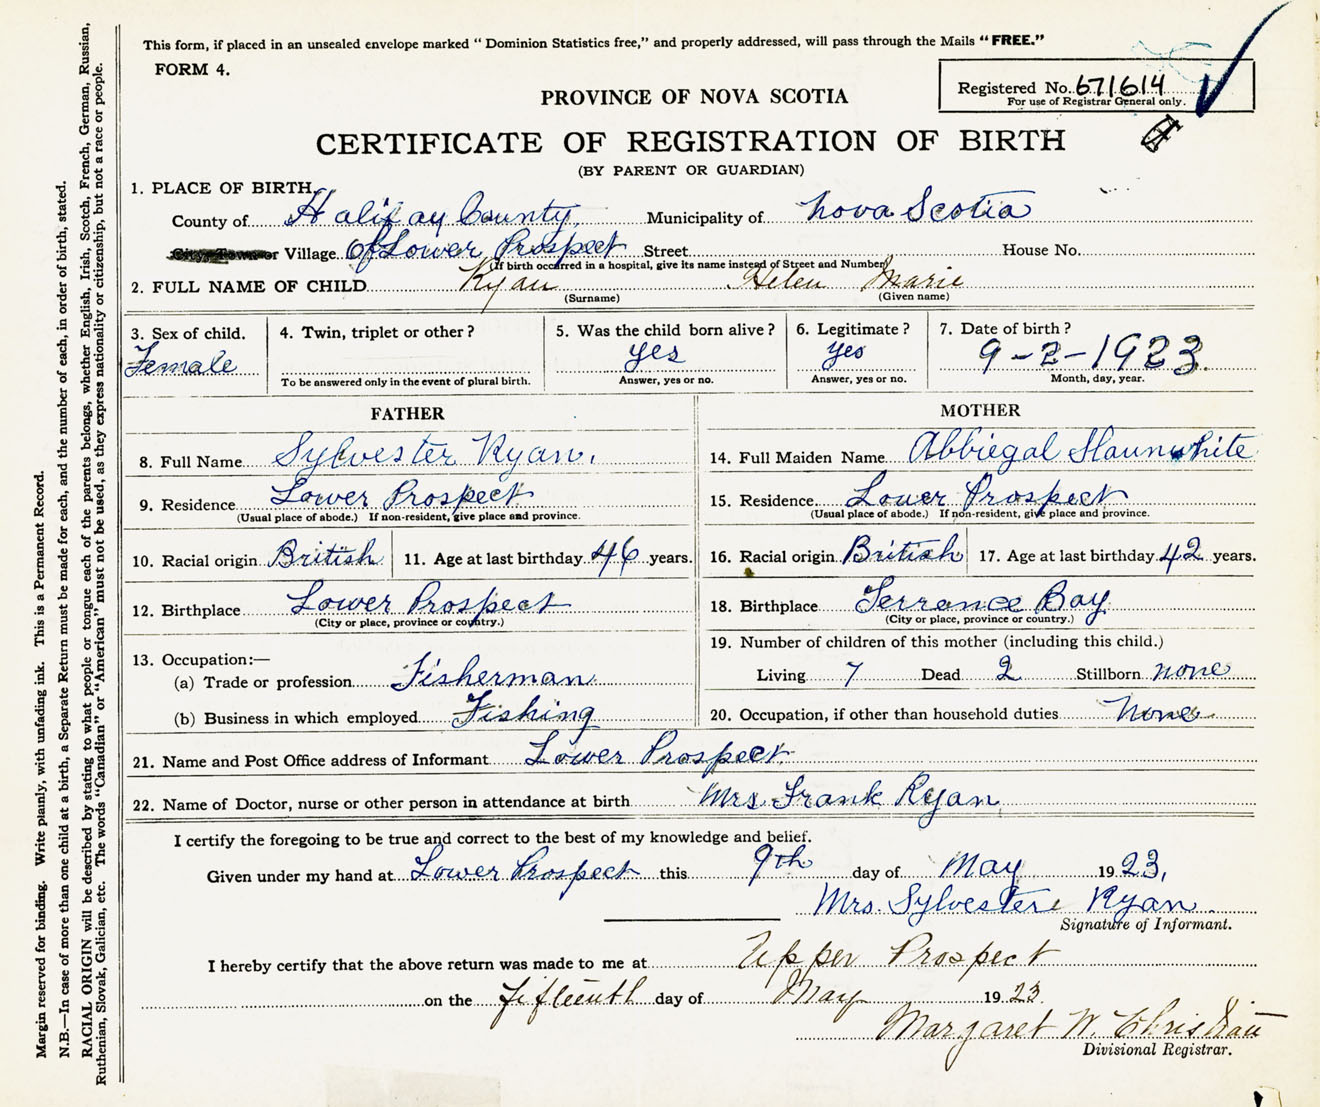 This form, if placed in an unsealed envelope marked “ Dominion Statistics free,” and properly addressed, will pass through the Mails “FREE.”
FORM 4.
Registered No. 671614
For use of Registrar General only.
PROVINCE OF NOVA SCOTIA
CERTIFICATE OF REGISTRATION OF BIRTH
(BY PARENT OR GUARDIAN)
1. PLACE OF BIRTH,
County of Halifax County Municipality of Nova Scotia
or Village Of Lower Prospect Street House No.
(If birth occurred in a hospital, give its name instead of Street and Number)
2. FULL NAME OF CHILD Ryan Helen Marie
(Surname) (Given name)
3. Sex of child. Female
4. Twin, triplet or other?
To be answered only in the event of plural birth.
5. Was the child born alive? yes
Answer, yes or no.
6. Legitimate? yes
Answer, yes or no.
7. Date of birth? 9-2-1923
Month, day, year.
FATHER
8. Full Name Sylvester Ryan.
9. Residence Lower Prospect
(Usual place of abode.) If non-resident, give place and province.
10. Racial origin British 11. Age at last birthday 46 years.
12. Birthplace Lower Prospect
(City or place, province or country.)
13. Occupation:—
(a) Trade or profession Fisherman
(b) Business in which employed Fishing
MOTHER
14. Full Maiden Name Abbiegal Slaunwhite
15. Residence Lower Prospect
(Usual place of abode.) If non-resident, give place and province.
16. Racial origin British 17. Age at last birthday 42 years.
18. Birthplace Terrance Bay
(City or place, province or country.)
19. Number of children of this mother (including this child.)
Living 7 Dead 2 Stillborn none
20. Occupation, if other than household duties None
21. Name and Post Office address of Informant Lower Prospect
22. Name of Doctor, nurse or other person in attendance at birth Mrs Frank Ryan
I certify the foregoing to be true and correct to the best of my knowledge and belief.
Given under my hand at Lower Prospect this 9th day of May 1923,
Mrs. Sylvester Ryan
Signature of Informant.
I hereby certify that the above return was made to me at Upper Prospect
on the fifteenth day of May 1923
Margaret W. Christian
Divisional Registrar.
Margin reserved for binding. Write plainly, with unfading ink. This is a Permanent Record.
N.B.—In case of more than one child at a birth, a Separate Return must be made for each, and the number of each, in order of birth, stated.
RACIAL ORIGIN will be described by stating to what people or tongue each of the parents belongs, whether English, Irish, Scotch, French, German, Russian,
Ruthenian, Slovak, Galician, etc. The words “Canadian” or “American” must not be used, as they express nationality or citizenship, but not a race or people.